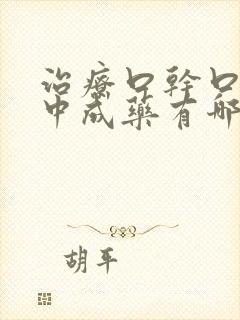 治療口幹口
中成藥有哪
胡平